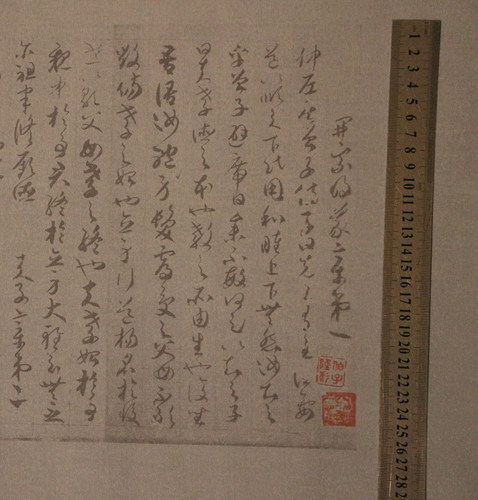 開宗明義章第一
仲尼居曾子侍子曰先王有至德要
道以順天下民用和睦上下無怨汝知之
乎曾子避席曰參不敏何足以知之子
曰夫孝德之本也教之所由生也復坐
吾語汝身體髮膚受之父母不敢
毀傷孝之始也立身行道揚名於後
世以顯父母孝之終也夫孝始於事
親中於事君終於立身大雅云無念
爾祖聿脩厥德 天子章第二
1 2 3 4 5 6 7 8 9 10 11 12 13 14 15 16 17 18 19 20 21 22 23 24 25 26 27 28